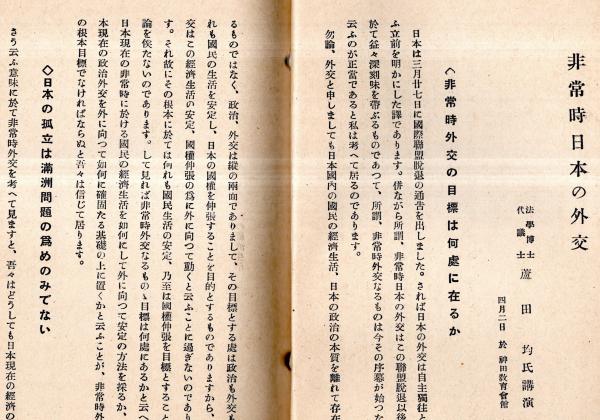 非常時日本の外交
法學博士
代議士
蘆田均氏講演
四月二日 於 神田敎育會館
◇非常時外交の目標は何處に在るか
日本は三月廿七日に國際聯盟脫退の通吿を出しました。されば日本の外交は自主獨往と
ふ立前を明かにした譯であります。併ながら所謂、非常時日本の外交はこの聯盟脫退以後
於て益々深刻味を帶ぶるものであつて、所謂、非常時外交なるものは今その序幕が始つた
云ふのが正當であると私は考へて居るのであります。
勿論、外交と申しましても日本國內の國民の經濟生活、日本の政治の本質を離れて存在
るものではなく、政治、外交は縱の兩面でありまして、その目標とする處は政治も外交も
れも國民の生活を安定し、日本の國權を伸張することを目的とするものでありますから、
交はこの經濟生活の安定、國權伸張の爲に外に向つて動くと云ふことに過ぎないのであり
す。それ故にその根本に於ては何れも國民生活の安定、乃至は國權伸張を目標とすること
論を俟たないのであります。して見れば非常時外交なるものゝ目標は何處にあるかと云へ
日本現在の非常時に於ける國民の經濟生活を如何にして外に向つて安定の方法を採るか、
本現在の政治外交を外に向つて如何に確固たる基礎の上に置くかと云ふことが、非常時外
の根本目標でなければならぬと吾々は信じて居ります。
◇日本の孤立は滿洲問題の爲めのみでない
さう云ふ意味に於て非常時外交を考へて見ますと、吾々はどうしても日本現在の經濟の